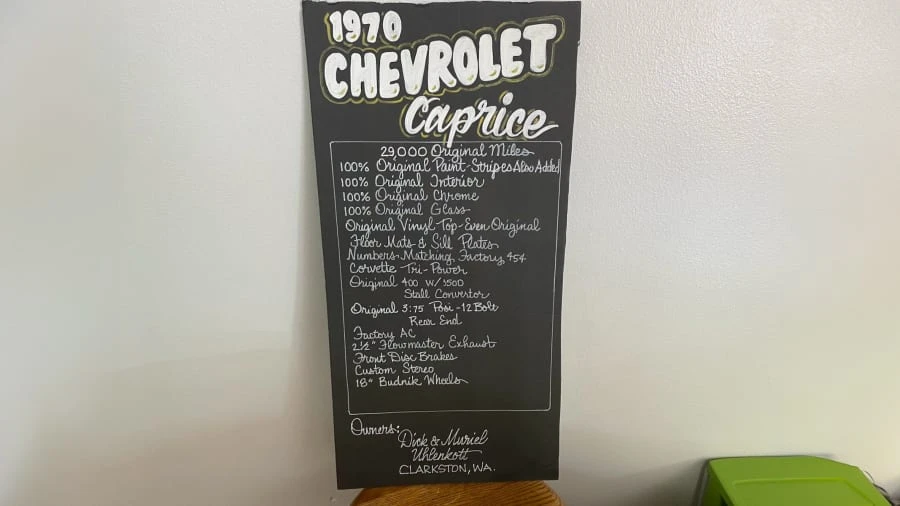 1970
CHEVROLET
Caprice
29,000 Original Miles
100% Original Paint-Stripes Also Added
100% Original Interior
100% Original Chrome
100% Original Glass
Original Vinyl Top-Even Original
Floor Mats & Sill Plates
Numbers-Matching, Factory 454
Corvette Tri-Power
Original 400 W/3500
Stall Convertor
Original 3:75 Posi-12 Bolt
Rear End
Factory AC
2½" Flowmaster Exhaust
Front Disc Brakes
Custom Stereo
18" Budnik Wheels
Owners:
Dick & Muriel
Uhlenkott
CLARKSTON, WA.